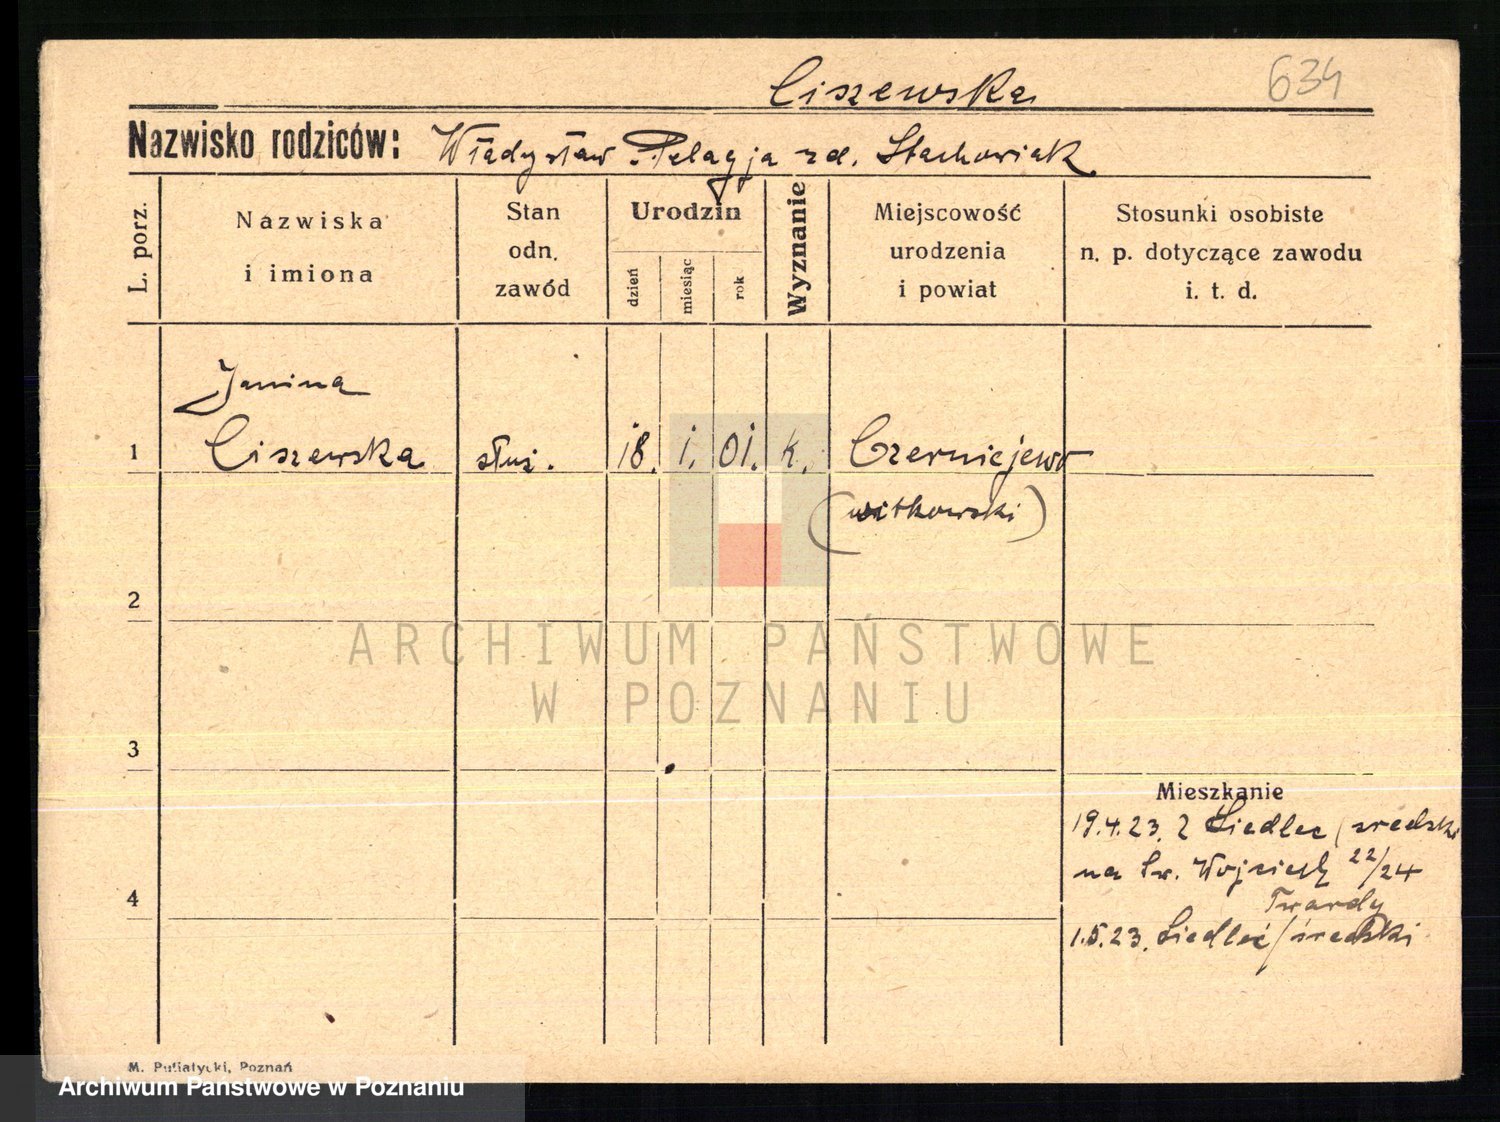 Ciszewska 634
Nazwisko rodziców: Władysław Pelagja zd. Stachowiak
L. porz.
Nazwiska
i imiona
Stan
odn.
zawód
Urodzin
dzień
miesiąc
rok
Wyznanie
Miejscowość
urodzenia
i powiat
Stosunki osobiste
n. p. dotyczące zawodu
i. t. d.
Janina
1 Ciszewska służ. 18. 1. 01. k. Czerniejewo
(witkowski)
2
ARCHIWUM PAŃSTWOWE
W POZNANIU
3
Mieszkanie
19.4.23. z Siedlec / średzki
na Św. Wojciech 22/24
4
Twardy
1.5.23. Siedleć / średzki
M. Putiatycki, Poznań
Archiwum Państwowe w Poznaniu